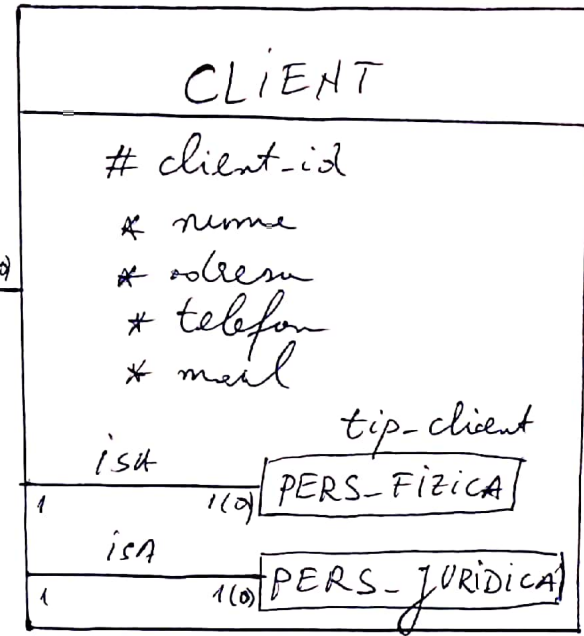 CLIENT
# client_id
* nume
* adresa
* telefon
* mail
tip_client
isA
1 1(0) PERS_FIZICA
isA
1 1(0) PERS_JURIDICA